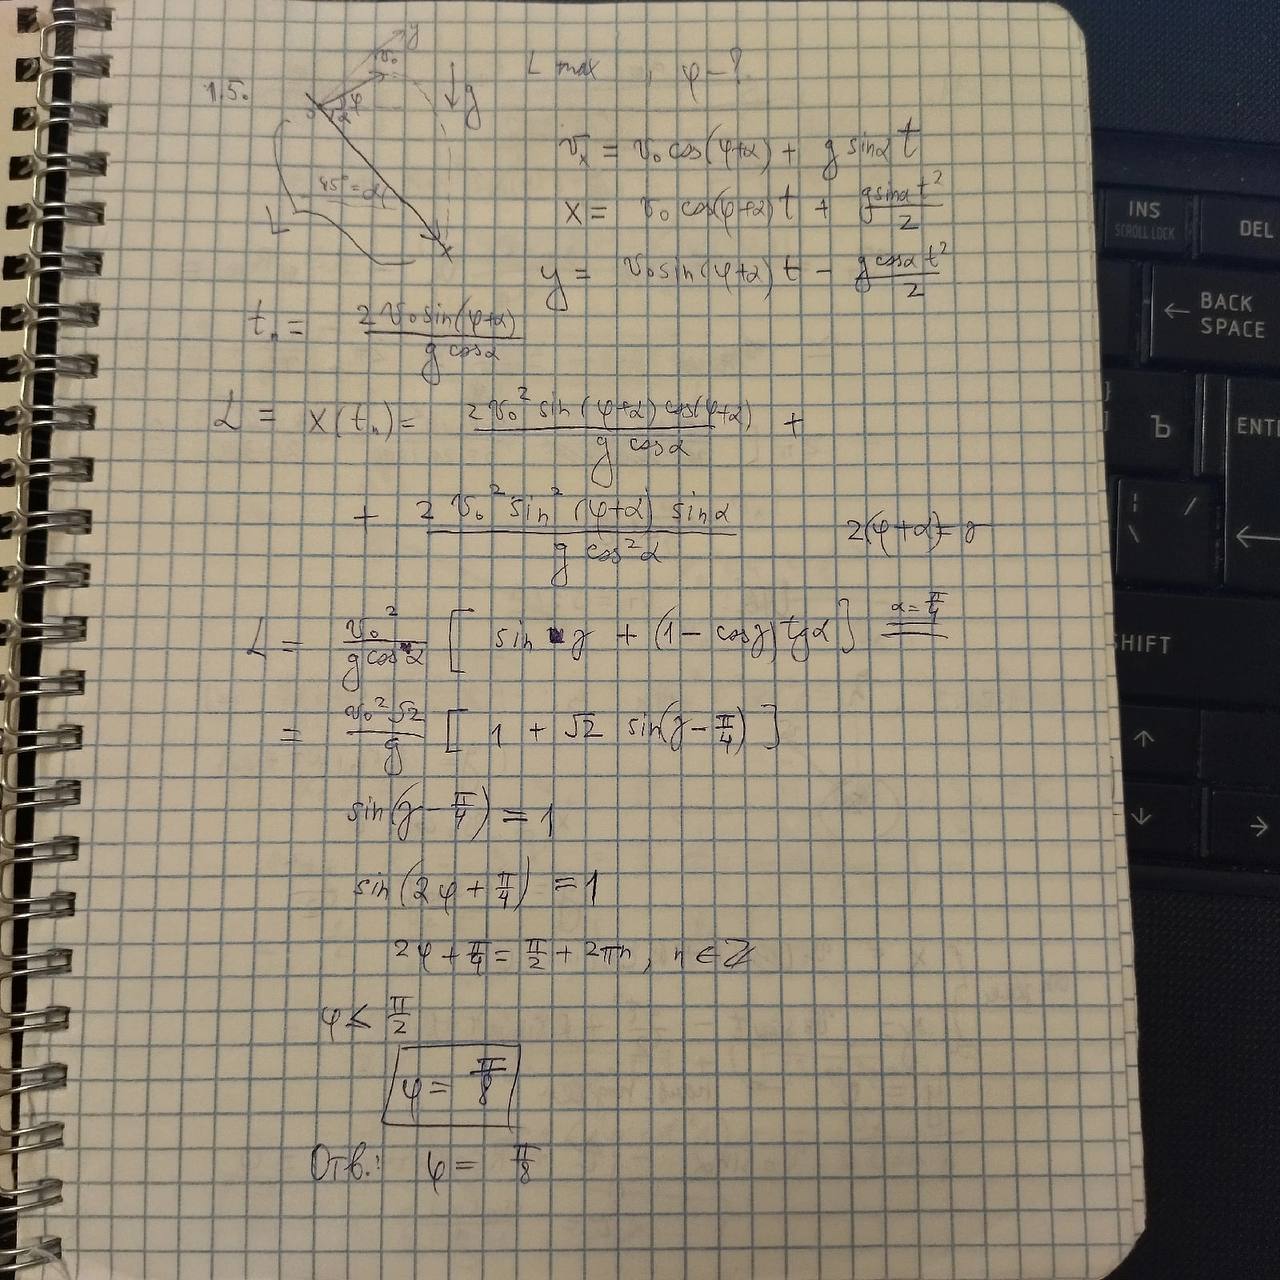 1.5.
y
v₀
φ
α
g
45° = α
L
x
L max , φ - ?
vₓ = v₀ cos(φ+α) + g sinα t
x = v₀ cos(φ+α) t + g sinα t² / 2
y = v₀ sin(φ+α) t - g cosα t² / 2
tₙ = 2 v₀ sin(φ+α) / g cosα
L = x(tₙ) = 2 v₀² sin(φ+α) cos(φ+α) / g cosα +
+ 2 v₀² sin²(φ+α) sinα / g cos²α
2(φ+α) = γ
L = v₀² / g cosα [ sin γ + (1 - cosγ) tgα ] = α = π/4
= v₀² √2 / g [ 1 + √2 sin(γ - π/4) ]
sin(γ - π/4) = 1
sin(2φ + π/4) = 1
2φ + π/4 = π/2 + 2πn, n ∈ ℤ
φ ≤ π/2
φ = π/8
Отв.: φ = π/8
INS
SCROLL LOCK
DEL
← BACK
SPACE
Ъ
ENT
/
\
←
SHIFT
↑
↓
→